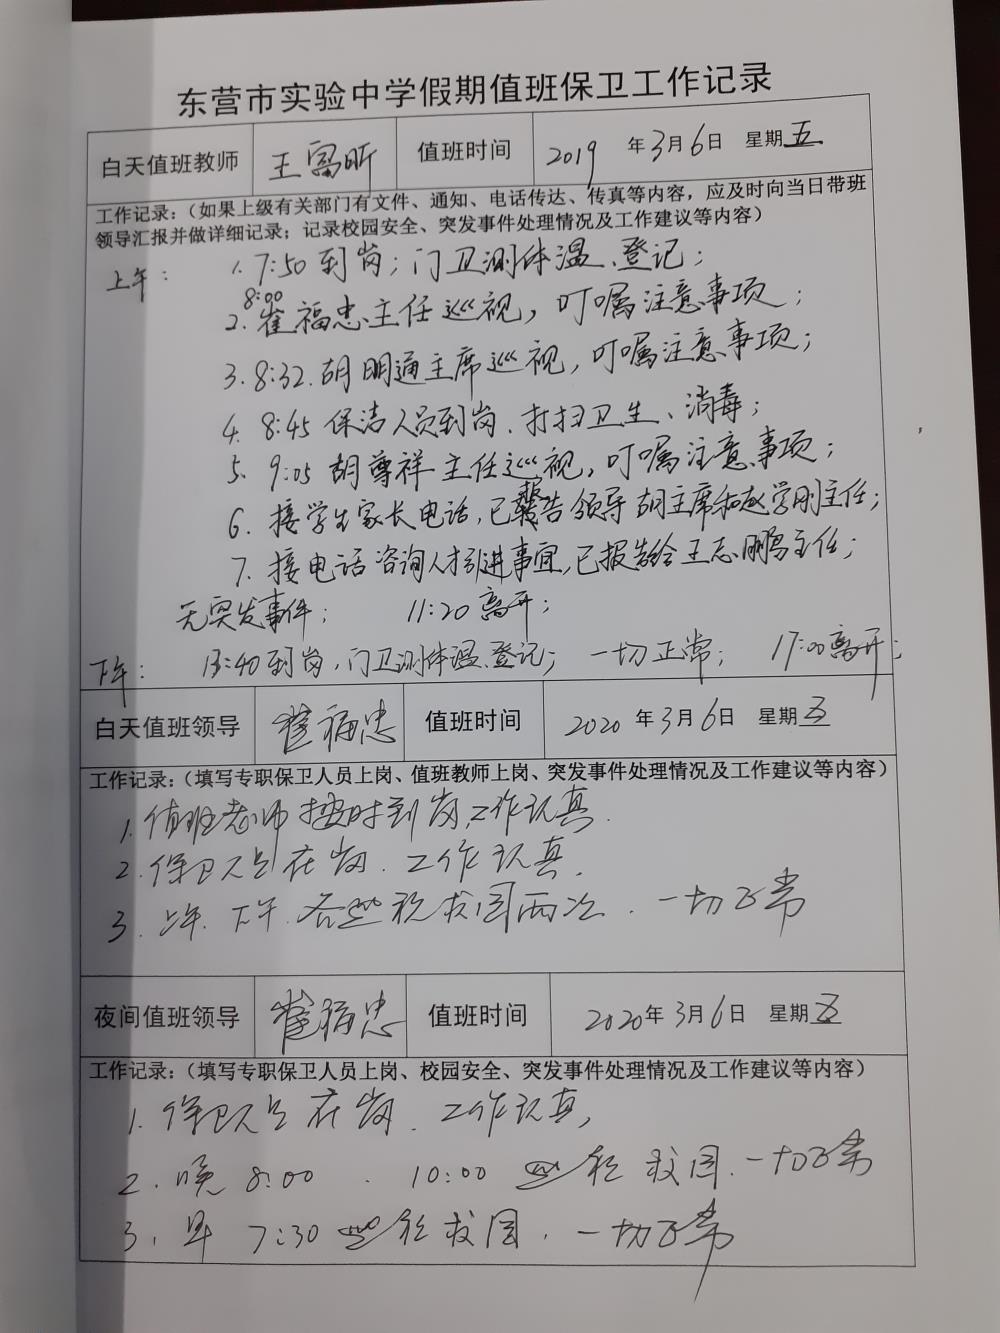 东营市实验中学假期值班保卫工作记录
白天值班教师 王富昕 值班时间 2019 年3月6日 星期五
工作记录：（如果上级有关部门有文件、通知、电话传达、传真等内容，应及时向当日带班
领导汇报并做详细记录；记录校园安全、突发事件处理情况及工作建议等内容）
上午： 1. 7:50到岗；门卫测体温、登记；
8:00
2. 崔福忠主任巡视，叮嘱注意事项；
3. 8:32. 胡明通主席巡视，叮嘱注意事项；
4. 8:45 保洁人员到岗、打扫卫生、消毒；
5. 9:05 胡尊祥主任巡视，叮嘱注意事项；
6. 接学生家长电话，已报告领导胡主席和赵学刚主任；
7. 接电话咨询人才引进事宜，已报告给王志鹏主任；
无突发事件； 11:20离开；
下午： 13:40到岗，门卫测体温、登记；一切正常； 17:00离开；
白天值班领导 崔福忠 值班时间 2020 年3月6日 星期五
工作记录：（填写专职保卫人员上岗、值班教师上岗、突发事件处理情况及工作建议等内容）
1. 值班老师按时到岗，工作认真.
2. 保卫人员在岗. 工作认真.
3. 上午. 下午. 各巡视校园两次. 一切正常
夜间值班领导 崔福忠 值班时间 2020年3月6日 星期五
工作记录：（填写专职保卫人员上岗、校园安全、突发事件处理情况及工作建议等内容）
1. 保卫人员在岗. 工作认真,
2. 晚 8:00 . 10:00 巡视校园. 一切正常
3. 早 7:30 巡视校园. 一切正常